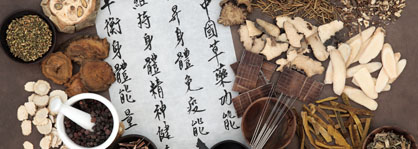 中國草藥功能
昇身體免疫能
維持身體精神健
衡身體能量